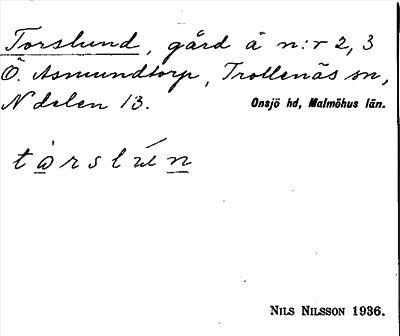 Torslund, gård å n:r 2, 3
Ö. Asmundtorp, Trollenäs sn,
N delen 13. Onsjö hd, Malmöhus län.
NILS NILSSON 1936.